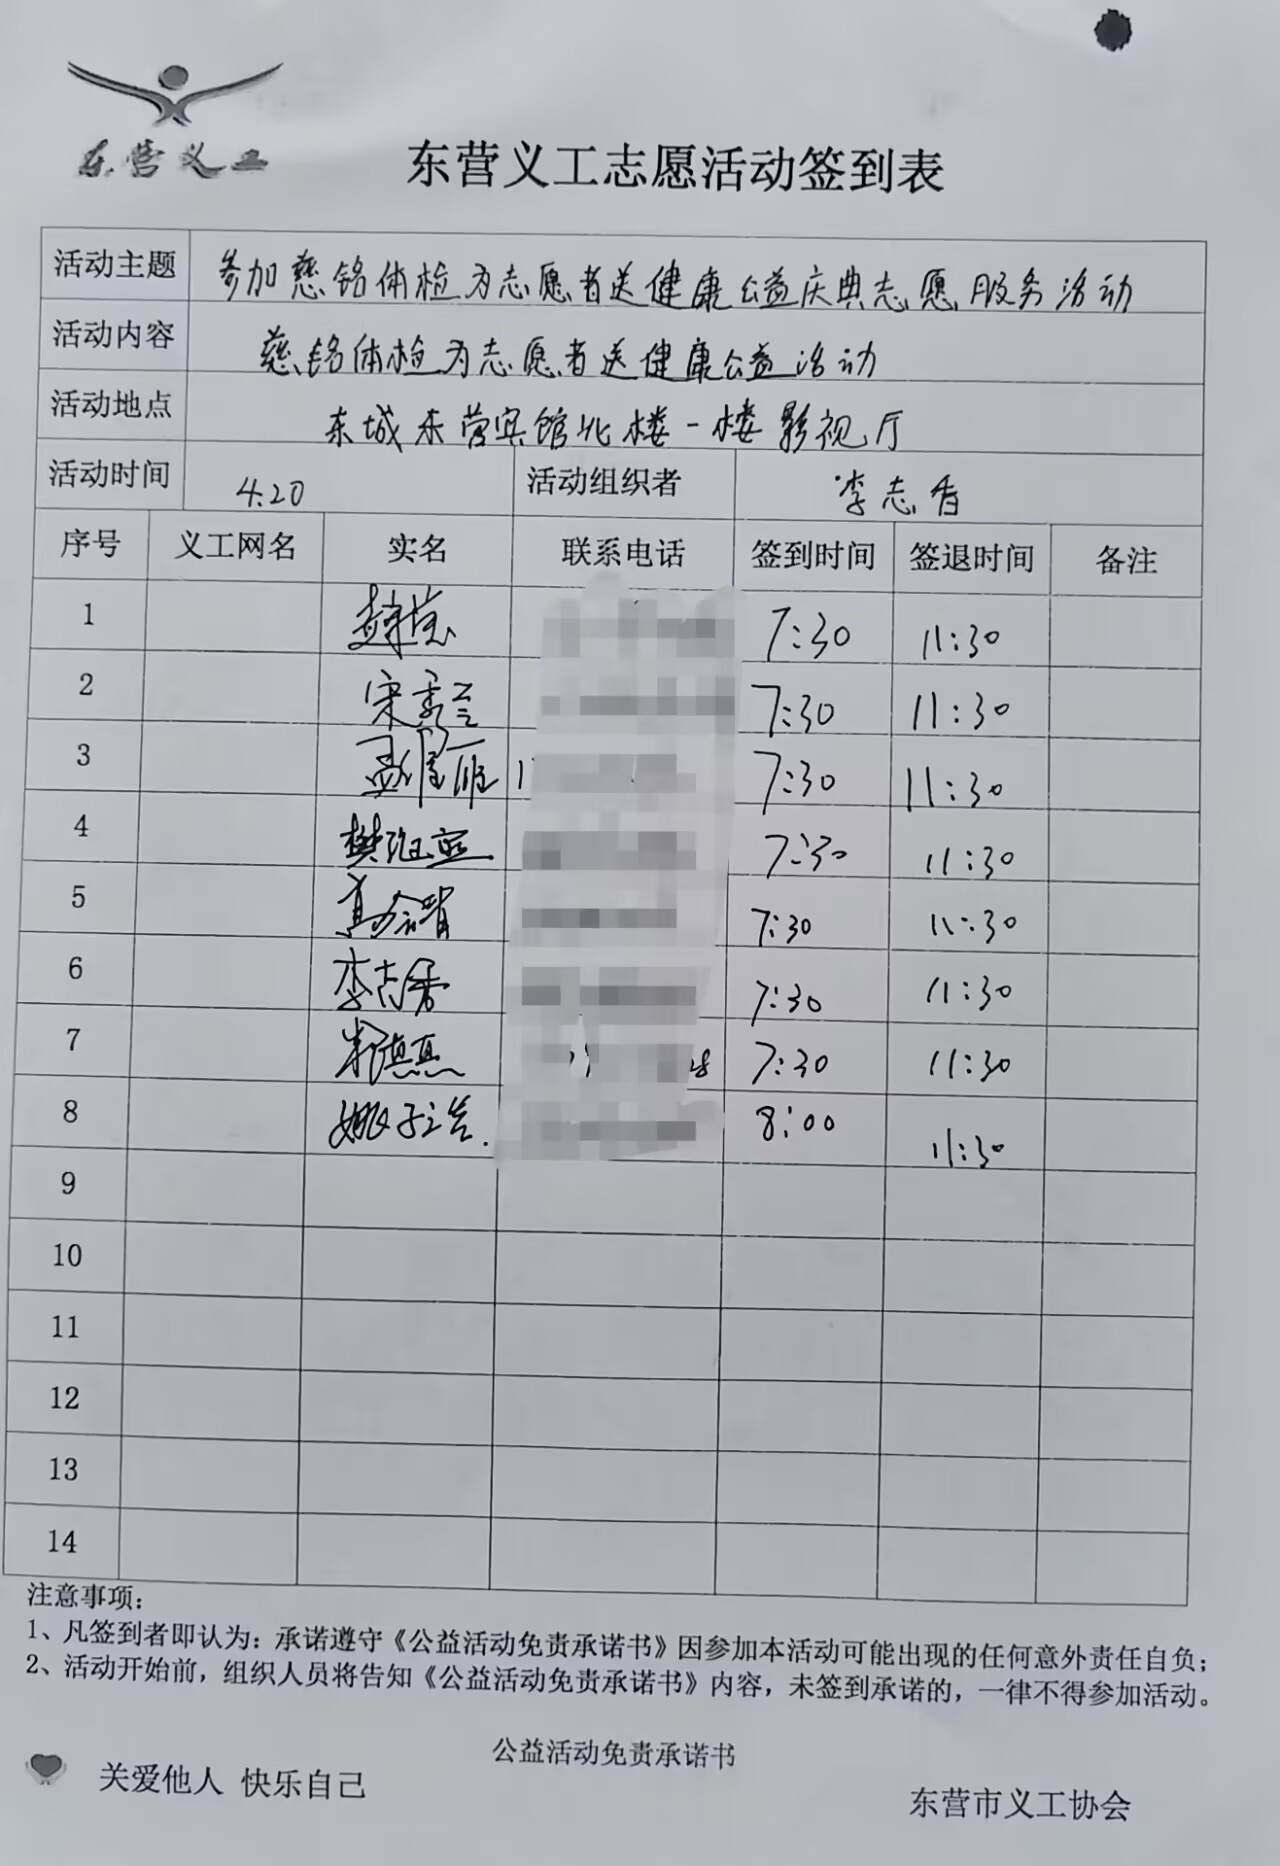 东营义工
东营义工志愿活动签到表
活动主题 参加慈铭体检为志愿者送健康公益庆典志愿服务活动
活动内容 慈铭体检为志愿者送健康公益活动
活动地点 东城东营宾馆北楼一楼影视厅
活动时间 4.20 活动组织者 李志香
序号 义工网名 实名 联系电话 签到时间 签退时间 备注
1 7:30 11:30
2 宋秀兰 7:30 11:30
3 7:30 11:30
4 7:30 11:30
5 7:30 11:30
6 李志香 7:30 11:30
7 7:30 11:30
8 8:00 11:30
9
10
11
12
13
14
注意事项：
1、凡签到者即认为：承诺遵守《公益活动免责承诺书》因参加本活动可能出现的任何意外责任自负；
2、活动开始前，组织人员将告知《公益活动免责承诺书》内容，未签到承诺的，一律不得参加活动。
公益活动免责承诺书
关爱他人 快乐自己
东营市义工协会